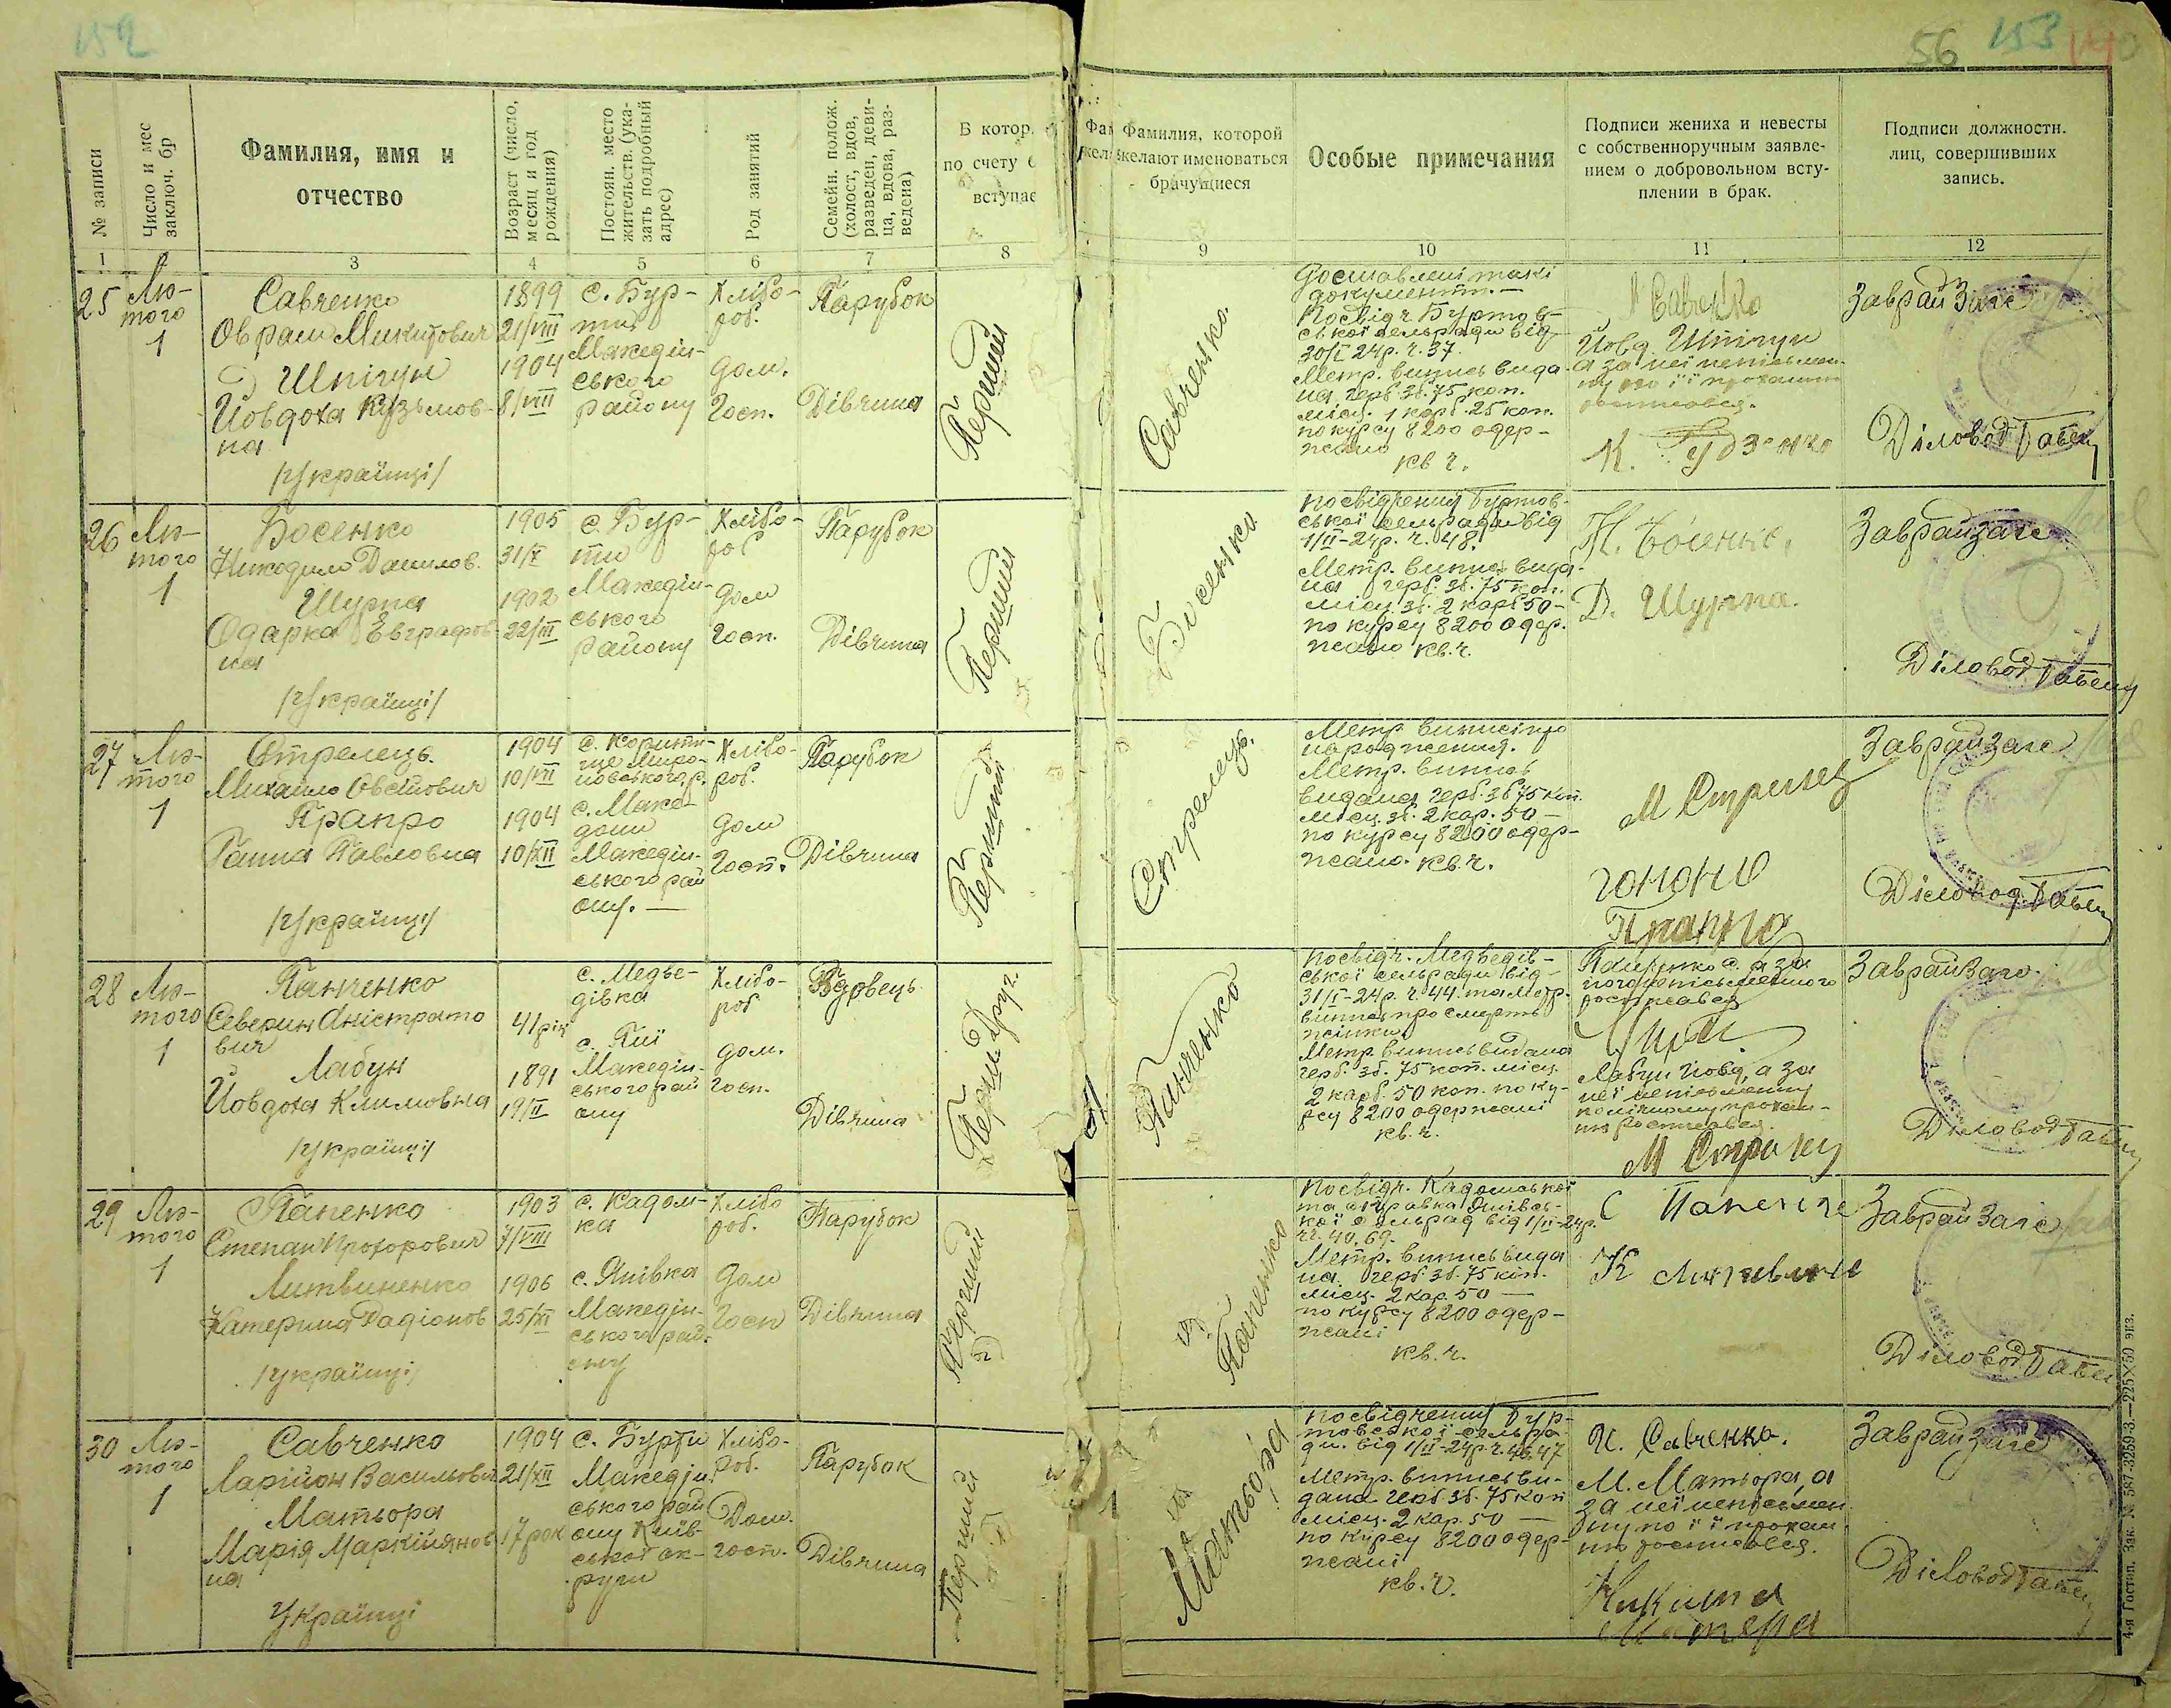 152
56 153
№ записи
Число и мес
заключ. бр
Фамилия, имя и
отчество
Возраст (число,
месяц и год
рождения)
Постоян. место
жительств. (ука-
зать подробный
адрес)
Род занятий
Семейн. полож.
(холост, вдов,
разведен, деви-
ца, вдова, раз-
ведена)
В котор.
по счету
вступае
Фамилия, которой
желают именоваться
брачущиеся
Особые примечания
Подписи жениха и невесты
с собственноручным заявле-
нием о добровольном всту-
плении в брак.
Подписи должностн.
лиц, совершивших
запись.
1
3
4
5
6
7
8
9
10
11
12
25
Лю-
того
1
Савченко
Оврам Микитович
Шпігун
Йовдоха Кузьмов-
на
/Українці/
1899
21/VIII
1904
8/VIII
с. Бур-
ти
Македін-
ського
району
Хлібо-
роб.
дом.
госп.
Парубок
Дівчина
Перший
Савченко
Доставлені такі
документи. —
Посвідч Буртов-
ської сельради від
30/I 24р. ч. 37.
Метр. випись вида-
на герб зб. 75 коп.
місц. 1 карб. 25 коп.
по курсу 8200 одер-
жано
кв ч.
Савченко
Йовд. Шпігун
а за неї неписьмен-
ну по її проханню
К. Гудзенко
Заврайзагс
Діловод
26
Лю-
того
1
Босенко
Никодим Данилов.
Щурпа
Одарка Евграфов-
на
/Українці/
1905
31/X
1902
22/III
с. Бур-
ти
Македін-
ського
району
Хлібо-
роб
дом
госп.
Парубок
Дівчина
Перший
Босенко
посвідчення Буртов-
ської сельради від
1/II-24р. ч. 48.
Метр. випись вида-
на герб. зб. 75 коп.
місц. зб. 2 карб 50-
по курсу 8200 одер-
жано кв. ч.
Д. Щурпа.
Заврайзагс
Діловод
27
Лю-
того
1
Стрелець
Михайло Овсійович
Прапро
Ганна Павловна
/Українці/
1904
10/VII
1904
10/XII
с. Корити-
ще Миро-
новського р.
с. Маке-
дони
Македін-
ського рай
ону. —
Хлібо-
роб.
дом
госп.
Парубок
Дівчина
Перший
Стрелець.
Метр виписі про
народження.
Метр. випись
видана герб. зб 75 коп.
місц. зб. 2 кар. 50 —
по курсу 8200 одер-
жано. кв. ч.
М Стрилец
Заврайзагс
Діловод
28
Лю-
того
1
Панченко
Северин Аністрато
вич
Лабун
Йовдоха Климовна
/Українці/
41 рік
1891
19/II
с. Медве-
дівка
с. Пії
Македін-
ського рай
ону
Хлібо-
роб
дом.
госп.
Вдовець
Дівчина
Панченко
посвідч. Медведів-
ської сельради від
31/I-24р. ч. 44. та метр.
випись про смерть
жінки
Метр випись видана
герб. зб. 75 коп. місц
2 карб. 50 коп. по ку-
рсу 8200 одержані
кв. ч.
Панченко С. а за
його неписьменного
росписавсь
Лабун Йовд, а за
неї неписьменну
М Стрилец
Заврайзагс.
Діловод
29
Лю-
того
1
Папенко
Степан Прохорович
Литвиненко
Катерина Радіонов
/українці/
1903
7/VIII
1906
25/XI
с. Кадом-
ка
с. Янівка
Македін-
ського рай-
ону
Хлібо
роб.
дом
госп
Парубок
Дівчина
Перший
Папенко
Метр. випись вида
на герб зб. 75 коп.
місц. 2 кар. 50 —
по курсу 8200 одер-
жані
кв. ч.
С Папенко
Заврайзагс
Діловод
30
Лю-
того
1
Савченко
Ларійон Васильович
Матьора
Марія Маркіянов
на
Українці
1904
21/XII
17 рок
с. Бурти
Македін-
ського рай
ону Київ-
ської ок-
руги
Хлібо-
роб.
Дом.
госп.
Парубок
Дівчина
Перший
Матьора
посвідчення Бур-
товської сельра-
ди. від 1/II-24р. ч. 46. 47
Метр. випись ви-
дана герб. зб. 75 коп
місц. 2 кар. 50 —
по курсу 8200 одер-
жані
кв. ч.
И. Савченко.
М. Матьора, а
за неї неписьмен-
ну по її прохан-
ню росписавсь.
Никита
Матера
Заврайзагс
Діловод
4-я Гостип. Зак. № 587-3259-3.—225×50 экз.